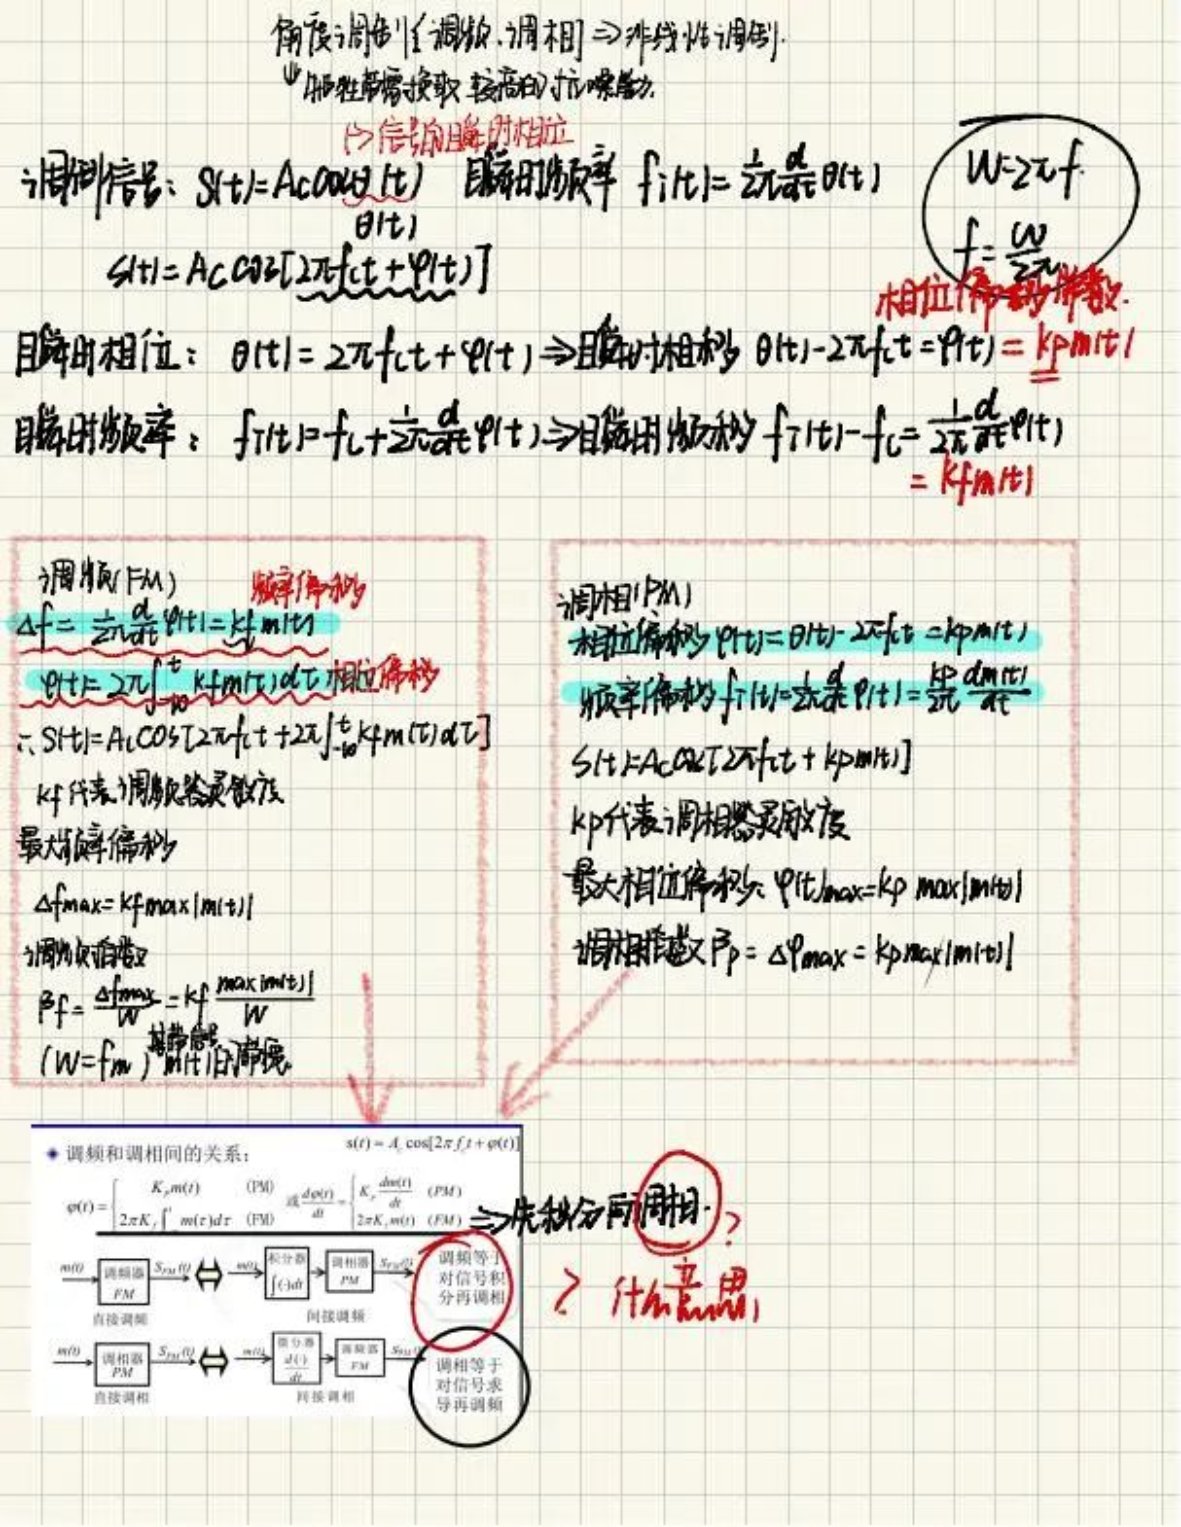 角度调制{调频、调相] ⇒ 非线性调制.
牺牲带宽换取 较高的抗噪能力.
↳信号的瞬时相位
调制信号: S(t)=Accosθ(t) 瞬时频率 fi(t)=1/2π d/dt θ(t)
θ(t)
W=2πf
f=W/2π
S(t)=Ac cos[2πfct+φ(t)]
相位偏移常数.
瞬时相位: θ(t)=2πfct+φ(t)⇒瞬时相移 θ(t)-2πfct=φ(t)=kpm(t)
瞬时频率: fi(t)=fc+1/2π d/dt φ(t)⇒瞬时频移 fi(t)-fc=1/2π d/dt φ(t)
=kfm(t)
调频(FM) 频率偏移
Δf=1/2π d/dt φ(t)=kfm(t)
φ(t)=2π∫_{-∞}^{t} kfm(τ)dτ 相位偏移
∴S(t)=Accos[2πfct+2π∫_{-∞}^{t} kfm(τ)dτ]
kf代表调频器灵敏度
最大频率偏移
Δfmax=kfmax|m(t)|
调频指数
βf=Δfmax/W=kf max|m(t)|/W
基带信号
(W=fm) m(t)的带宽
调相(PM)
相位偏移φ(t)=θ(t)-2πfct=kpm(t)
频率偏移fi(t)=1/2π d/dt φ(t)=kp/2π dm(t)/dt
S(t)=Accos[2πfct+kpm(t)]
kp代表调相器灵敏度
最大相位偏移: φ(t)max=kp max|m(t)|
调相指数βp=Δφmax=kpmax|m(t)|
s(t)=Ac cos[2πfct+φ(t)]
◆ 调频和调相间的关系:
φ(t)={ Kpm(t) (PM) 或 dφ(t)/dt={ Kp dm(t)/dt (PM)
2πKf∫^t m(τ)dτ (FM) 2πKfm(t) (FM)
⇒先积分再调相.?
m(t) 调频器 FM SFM(t) ⇔ m(t) 积分器 ∫(·)dt 调相器 PM SFM(t) 调频等于对信号积分再调相
直接调频 间接调频
? 什么意思,
m(t) 调相器 PM SPM(t) ⇔ m(t) 微分器 d(·)/dt 调频器 FM SPM(t) 调相等于对信号求导再调频
直接调相 间接调相